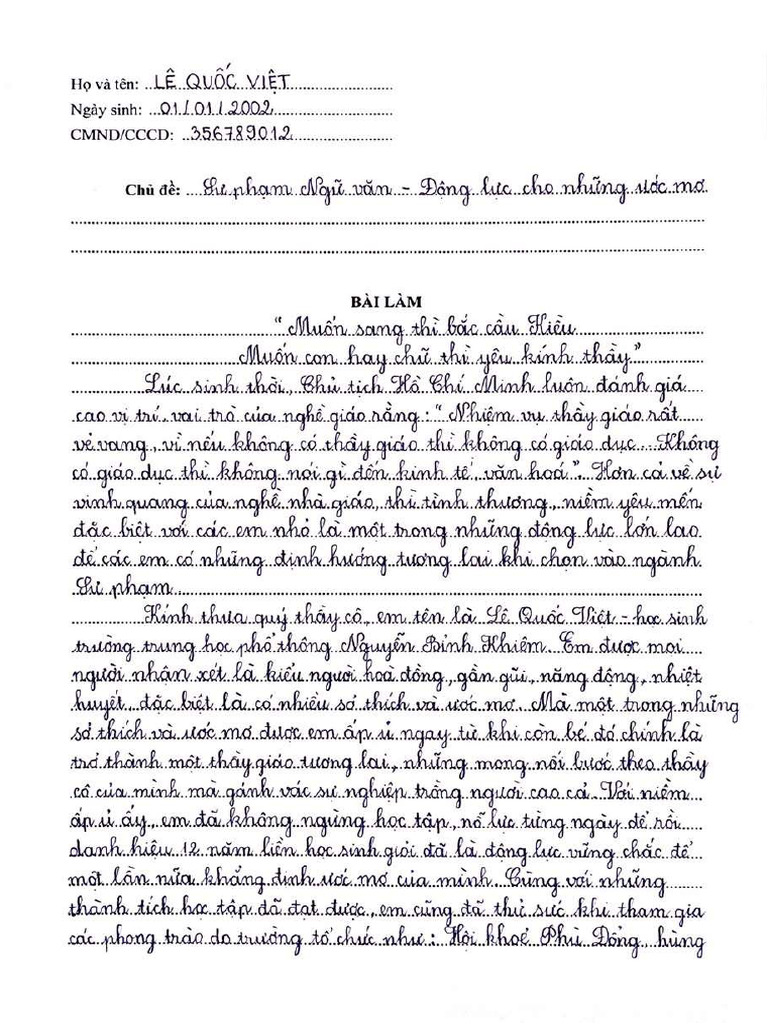 Họ và tên: LÊ QUỐC VIỆT
Ngày sinh: 01/01/2002
CMND/CCCD: 356789012
Chủ đề: Sư phạm Ngữ văn - Động lực cho những ước mơ.
BÀI LÀM
"Muốn sang thì bắc cầu Kiều
Muốn con hay chữ thì yêu kính thầy"
Lúc sinh thời, Chủ tịch Hồ Chí Minh luôn đánh giá
cao vị trí, vai trò của nghề giáo rằng: "Nhiệm vụ thầy giáo rất
vẻ vang, vì nếu không có thầy giáo thì không có giáo dục... Không
có giáo dục thì không nói gì đến kinh tế, văn hoá". Hơn cả về sự
vinh quang của nghề nhà giáo, thì tình thương, niềm yêu mến
đặc biệt với các em nhỏ là một trong những động lực lớn lao
để các em có những định hướng tương lai khi chọn vào ngành
Sư phạm.
Kính thưa quý thầy cô, em tên là Lê Quốc Việt - học sinh
trường trung học phổ thông Nguyễn Bỉnh Khiêm. Em được mọi
người nhận xét là kiểu người hoà đồng, gần gũi, năng động, nhiệt
huyết, đặc biệt là có nhiều sở thích và ước mơ. Mà một trong những
sở thích và ước mơ được em ấp ủ ngay từ khi còn bé đó chính là
trở thành một thầy giáo tương lai, những mong nối bước theo thầy
cô của mình mà gánh vác sự nghiệp trồng người cao cả. Với niềm
ấp ủ ấy, em đã không ngừng học tập, nỗ lực từng ngày để rồi
danh hiệu 12 năm liền học sinh giỏi đã là động lực vững chắc để
một lần nữa khẳng định ước mơ của mình. Cùng với những
thành tích học tập đã đạt được, em cũng đã thử sức khi tham gia
các phong trào do trường tổ chức như: Hội khoẻ Phù Đổng, hùng